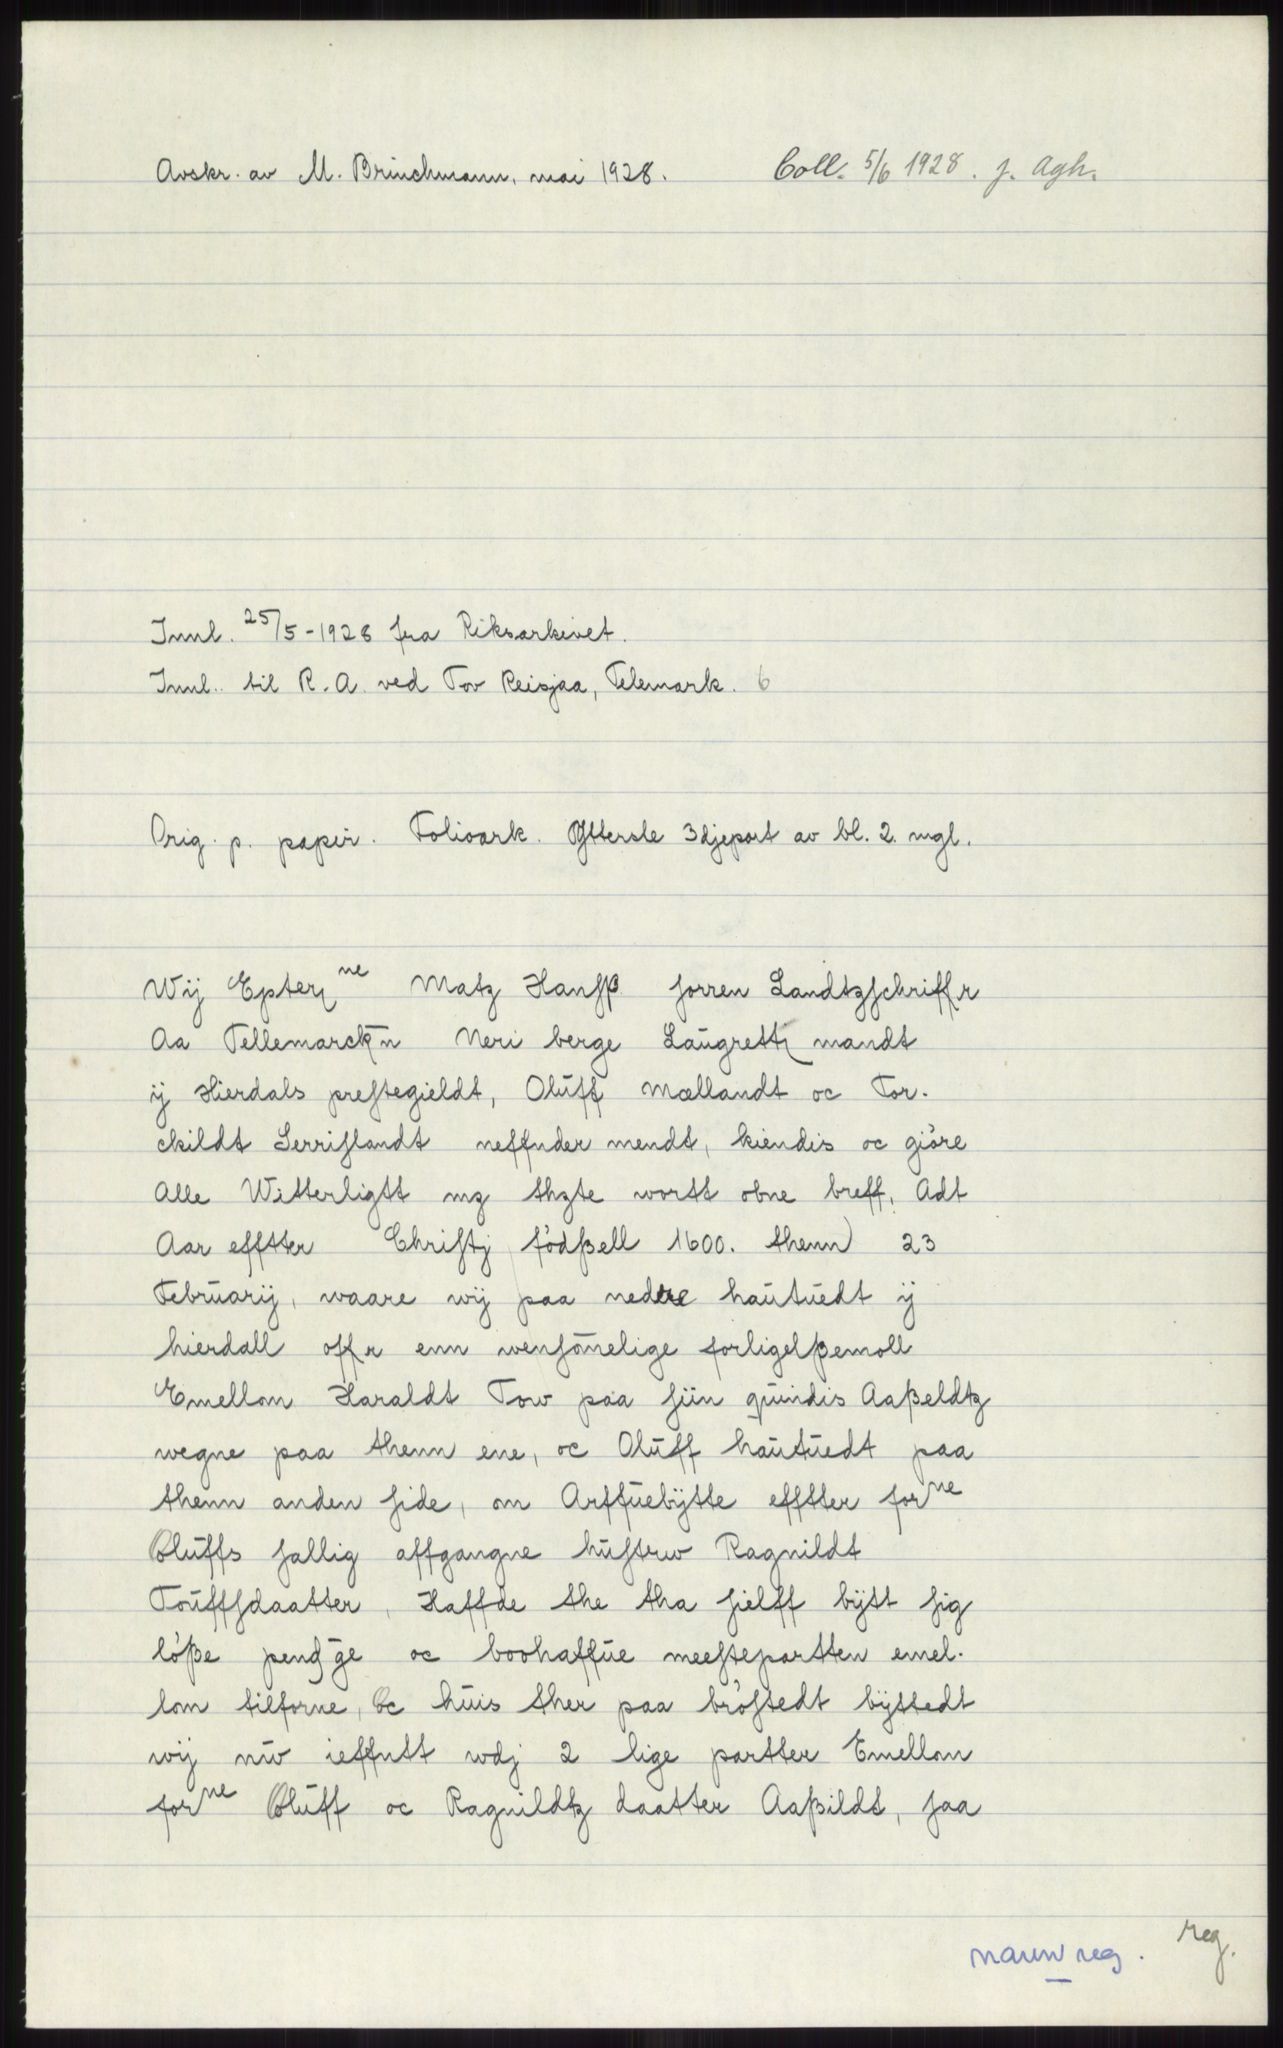 Avskr. av M. Brinchmann, mai 1928. Coll. 5/6 1928. J. Agh.
Innl. 25/5-1928 fra Riksarkivet.
Innl. til R.A. ved Tov Reisjaa, Telemark. 6
Orig. p. papir. Folioark. Ytterste 3djepart av bl. 2. mgl.
Wij Epter ne Matz Hansß sorren Landtzschriffr
Aa Tellemarckn̄ Neri berge Laugrett mandt
ij Hierdals prestegieldt, Oluff Mællandt oc Tor-
ckildt Serrislandt neffnder mendt, kiendis oc giöre
Alle Witterligtt mz thzte wortt obne breff, Adt
Aar effter Christj födßell 1600. thenn 23
Februarij, waare wij paa nedre hautuedt ij
hierdall offr enn wensōmelige forligelßemoll
Emellom Haraldt Tow paa siin quindis Aaßeldtz
wegne paa thenn ene, oc Oluff hautuedt paa
thenn anden side, om Arffuebÿtte effter forne
Oluffs sallig affgangne hustrw Ragnildt
Touffsdaatter, Haffde the tha sielff bÿtt sig
löße pendge oc boohaffue meesteparten emel-
lom tilforne, Oc huis ther paa bröstedt bÿttedt
wij nw ieffntt wdj 2 lige partter Emellom
forne Oluff oc Ragnildtz daatter Aaßildt, saa
navnreg. reg.